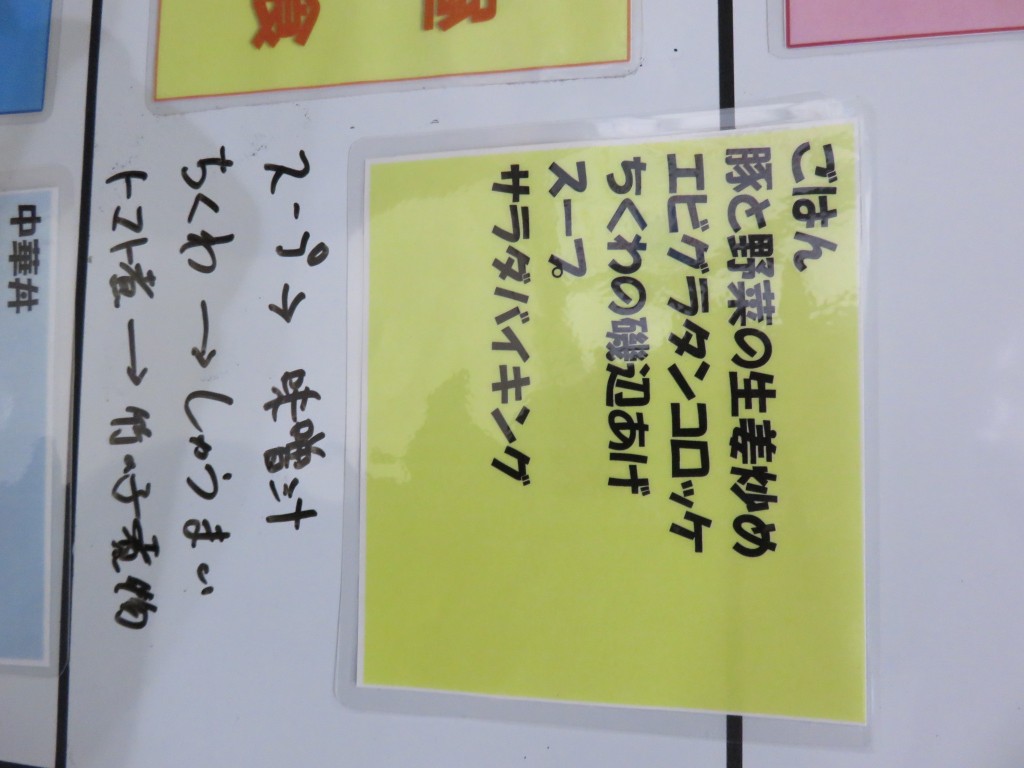 食
ごはん
豚と野菜の生姜炒め
エビグラタンコロッケ
ちくわの磯辺あげ
スープ
サラダバイキング
スープ→味噌汁
ちくわ→しゅうまい
トマト煮→竹の子煮物
中華丼